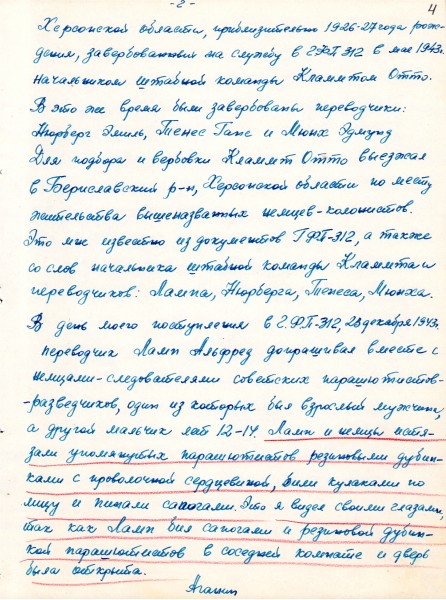 -2-
4
Херсонской области, приблизительно 1926-27 года рож-
дения, завербованный на службу в ГФП-312 в мае 1943г.
начальником штабной команды Кламмтом Отто.
В это же время были завербованы переводчики:
Нюрберг Эмиль, Тенес Ганс и Мюнх Эдмунд
Для подбора и вербовки Кламмт Отто выезжал
в Бериславский р-н, Херсонской области по месту
жительства вышеназванных немцев-колонистов.
Это мне известно из документов ГФП-312, а также
со слов начальника штабной команды Кламмта и
переводчиков: Лампа, Нюрберга, Тенеса, Мюнха.
В день моего поступления в ГФП-312, 28 декабря 1943г.
переводчик Ламп Альфред допрашивал вместе с
немцами-следователями советских парашютистов-
-разведчиков, один из которых был взрослый мужчина,
а другой мальчик лет 12-14. Ламп и немцы истя-
зали упомянутых парашютистов резиновыми дубин-
ками с проволочной сердцевиной, били кулаками по
лицу и пинали сапогами. Это я видел своими глазами,
так как Ламп бил сапогами и резиновой дубин-
кой парашютистов в соседней комнате и дверь
была открыта.